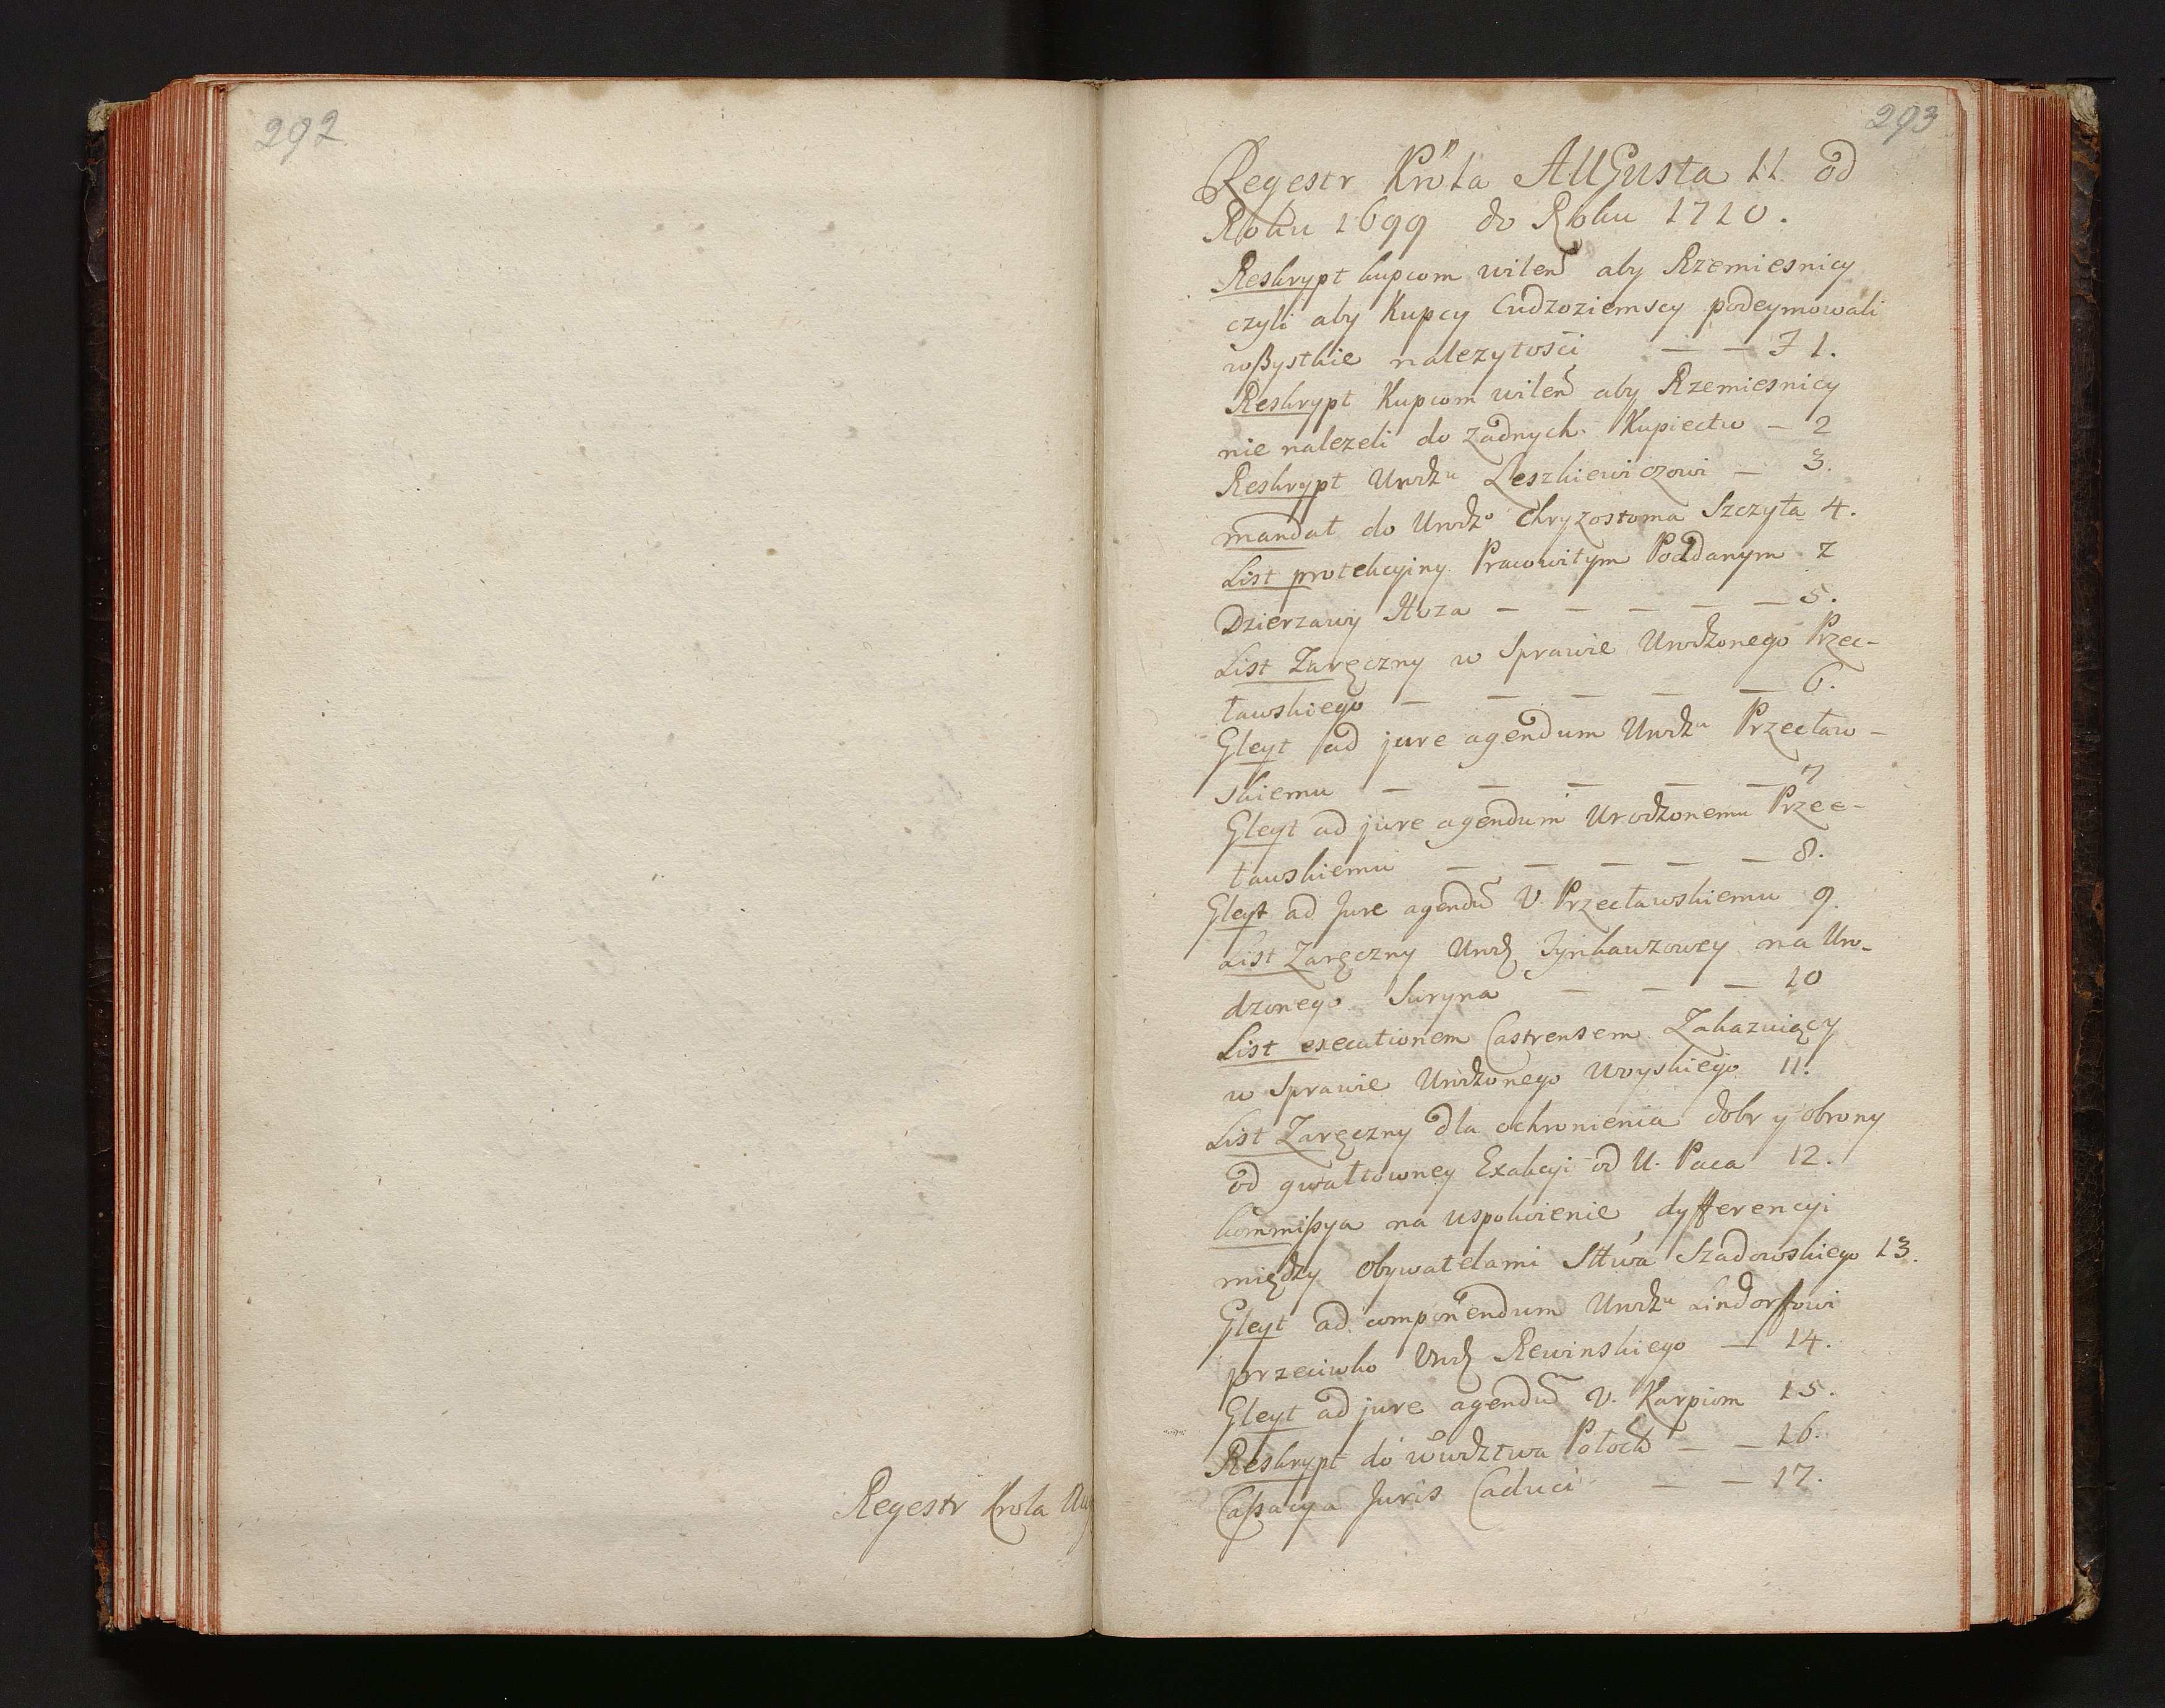 292
Regestr Krola Aug
293
Regestr Króla AUGusta II. od
Roku 1699 do Roku 1710.
Reskrypt kupcom wilen aby Rzemiesnicy
czyli aby Kupcy Cudzoziemscy podeymowali
wßystkie nalezytości — — F 1.
Reskrypt Kupcom wilen aby Rzemiesnicy
nie nalezeli do zadnych Kupiectw — 2
Reskrypt Urodzu Leszkiewiczowi — 3.
mandat do Urodzo Chryzostoma Szczyta 4.
List protekcyiny Pracowitym Poddanym z
Dzierzawy — — — — — 5.
List Zaręczny w Sprawie Urodzonego Przec-
ławskiego — — — — — 6.
Gleyt ad jure agendum Urodzu Przecław-
skiemu — — — — — 7
Gleyt ad jure agendum Urodzonemu Przec-
ławskiemu — — — — — 8.
Gleyt ad Jure agendū U. Przecławskiemu 9.
List Zaręczny Urodz Tynhauzowey na Uro-
dzonego Suryna — — — 10
List executionem Castrensem Zakazuiący
w Sprawie Urodzonego Woyskiego 11.
List Zaręczny dla ochronienia dobr y obrony
od gwałtowney Exakcyi od U. Paca 12.
kommißya na uspokoienie dyfferencyi
między obywatelami Sttwa Szadowskiego 13.
Gleyt ad componendum Urodzu Lindorffowi
przeciwko Urodz Rewinskiego — 14.
Gleyt ad jure agendū U. Karpiom 15.
Reskrypt do wdztwa Połock — — 16.
Caßacya Juris Caduci — — 17.